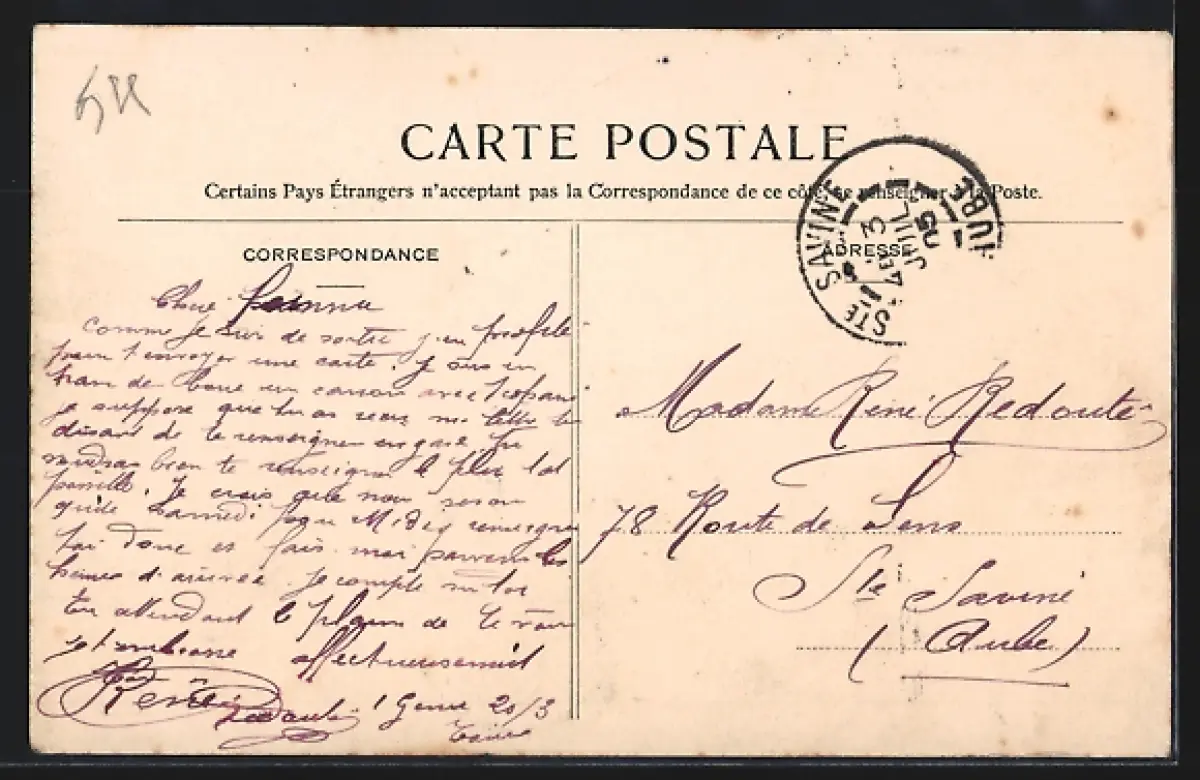 CARTE POSTALE
Certains Pays Étrangers n'acceptant pas la Correspondance de ce côté, se renseigner à la Poste.
CORRESPONDANCE
ADRESSE
STE SAVINE AUBE
3
JUIL
05
Chere
Comme je suis de sortie j'en profite
pour t'envoyer une carte. Je suis en
train de boire un canon avec
je suppose que tu as recu ma lettre te
disant de te renseigner en gare
bien te renseigner le plus tot
possible. Je crois que nous serons
Samedi pour Midi renseigne
toi donc et fais moi parvenir les
heures d'arrivée. Je compte sur toi
en attendant le plaisir de te voir
et t'embrasse affectueusement
René
Redouté 1 Genie 20/3
Madame René Redouté
78 Route de Sens
Ste Savine
(Aube)